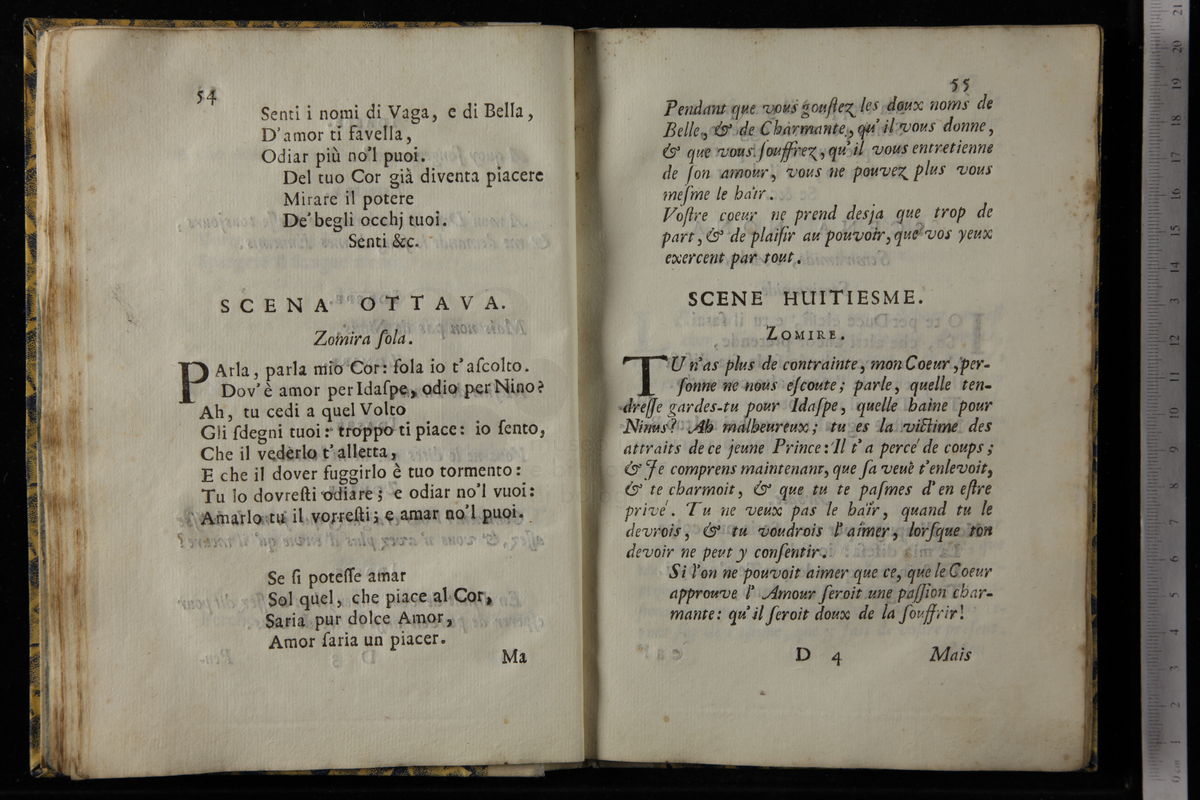 54
Senti i nomi di Vaga, e di Bella,
D'amor ti favella,
Odiar più no'l puoi.
Del tuo Cor già diventa piacere
Mirare il potere
De' begli occhj tuoi.
Senti &c.
SCENA OTTAVA.
Zomira ſola.
PArla, parla mio Cor: ſola io t'aſcolto.
Dov'è amor per Idaſpe, odio per Nino?
Ah, tu cedi a quel Volto
Gli ſdegni tuoi: troppo ti piace: io ſento,
Che il vederlo t'alletta,
E che il dover fuggirlo è tuo tormento:
Tu lo dovreſti odiare; e odiar no'l vuoi:
Amarlo tu il vorreſti; e amar no'l puoi.
Se ſi poteſſe amar
Sol quel, che piace al Cor,
Saria pur dolce Amor,
Amor ſaria un piacer.
Ma
55
Pendant que vous gouſtez les doux noms de
Belle, & de Charmante, qu'il vous donne,
& que vous ſouffrez, qu'il vous entretienne
de ſon amour, vous ne pouvez plus vous
meſme le haïr.
Voſtre coeur ne prend desja que trop de
part, & de plaiſir au pouvoir, que vos yeux
exercent par tout.
SCENE HUITIESME.
ZOMIRE.
TU n'as plus de contrainte, mon Coeur, per-
ſonne ne nous eſcoute; parle, quelle ten-
dreſſe gardes-tu pour Idaſpe, quelle haine pour
Ninus? Ah malheureux; tu es la victime des
attraits de ce jeune Prince: Il t'a percé de coups;
& Je comprens maintenant, que ſa veuë t'enlevoit,
& te charmoit, & que tu te paſmes d'en eſtre
privé. Tu ne veux pas le haïr, quand tu le
devrois, & tu voudrois l'aimer, lorſque ton
devoir ne peut y conſentir.
Si l'on ne pouvoit aimer que ce, que le Coeur
approuve l'Amour ſeroit une paſſion char-
mante: qu'il ſeroit doux de la ſouffrir!
D 4
Mais